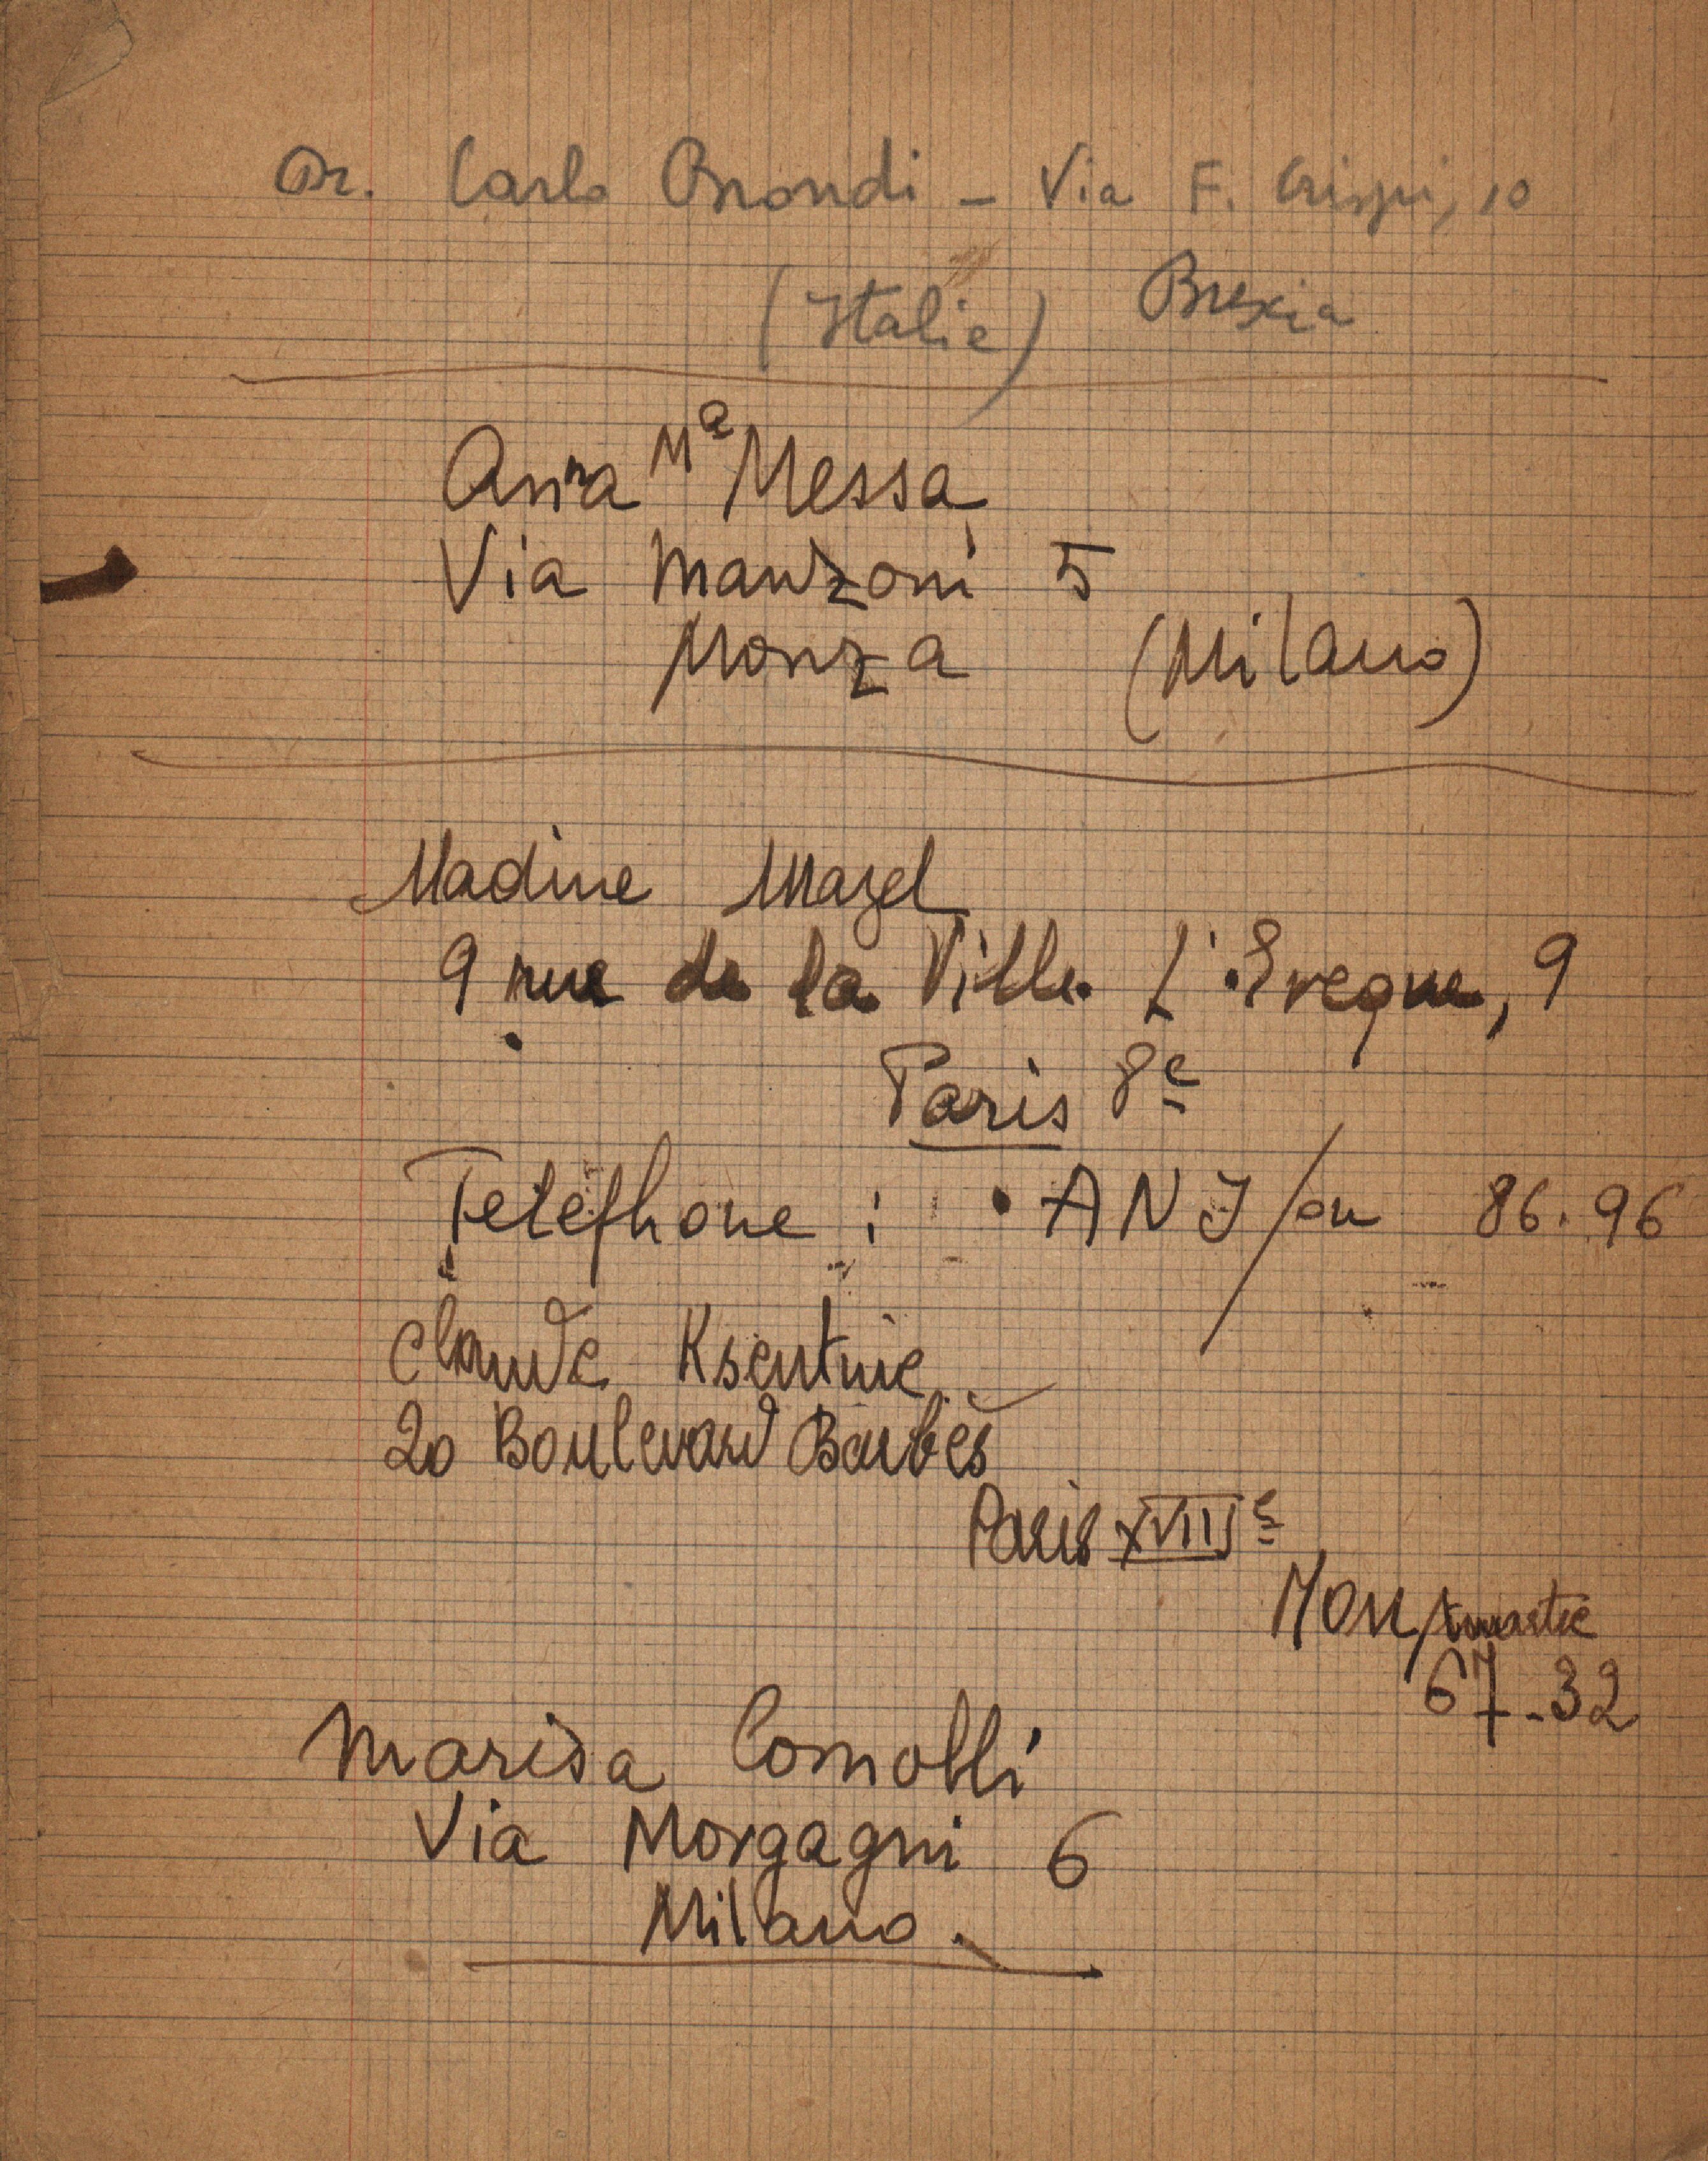 Dr. Carlo Brondi - Via F. Crispi, 10
(Italie) Brescia
Anna Mª Messa
Via Manzoni 5
Monza (Milano)
Nadine Mazel
9 rue de la Ville L'Eveque, 9
Paris 8e
Teléphone : ANJ/ou 86.96
Claude Ksentine
20 Boulevard Barbès
Paris XVIIIe
Mon/tmartre
67-32
Marisa Comolli
Via Morgagni 6
Milano.